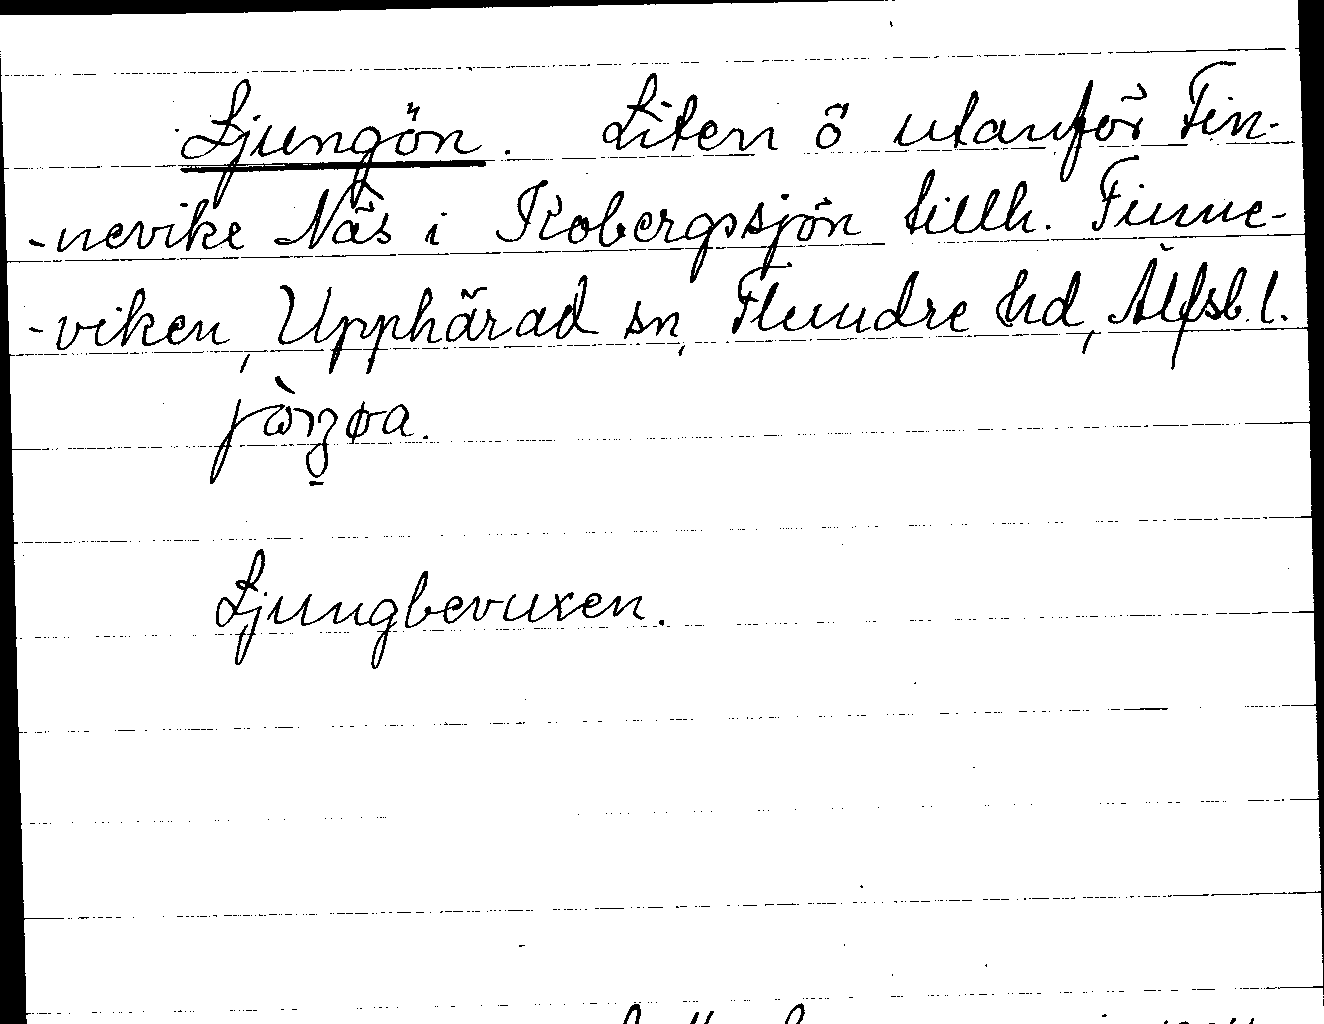 Ljungön. Liten ö utanför Fin-
-nevike Näs i Kobergssjön tillh. Finne-
-viken, Upphärad sn, Flundre hd, Älfsb. l.
Ljungbevuxen.